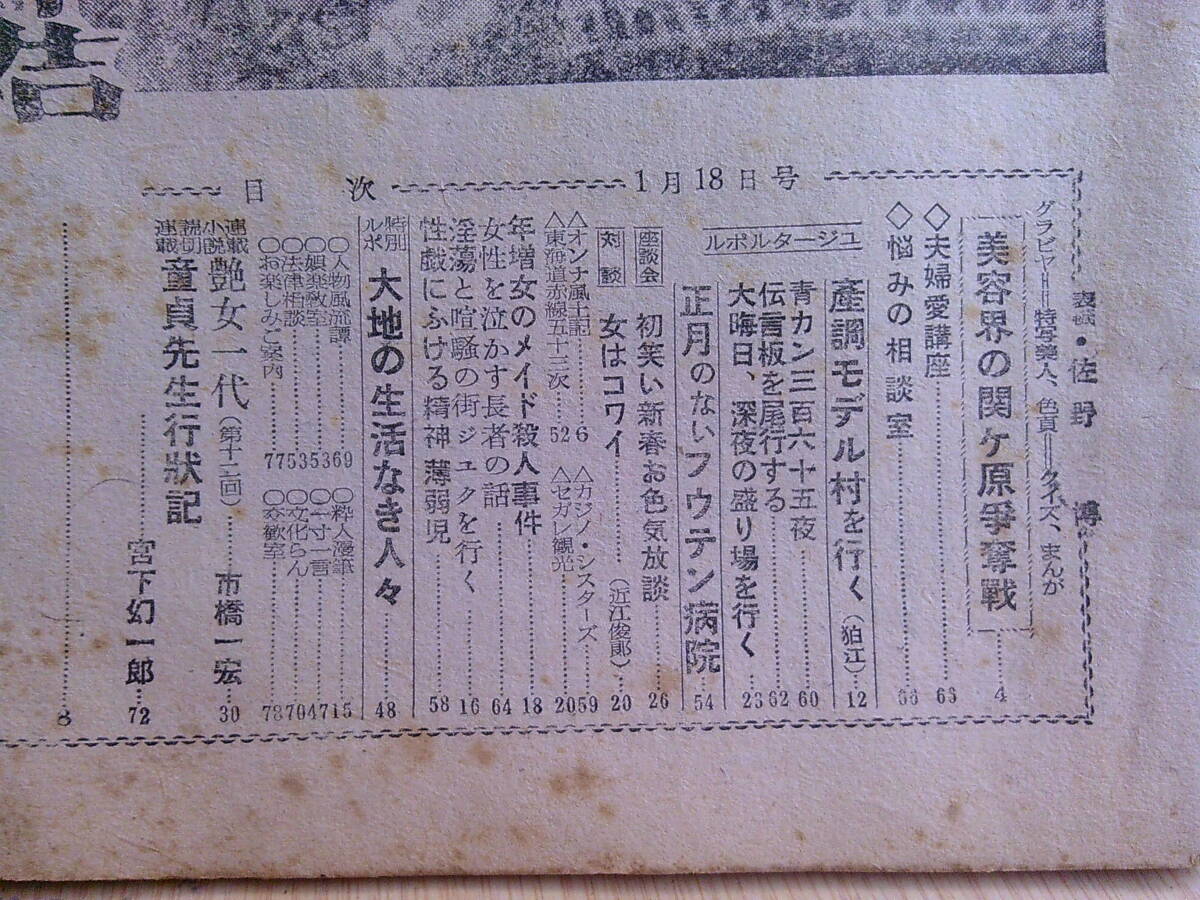 1月18日号
目次
表紙・佐野　博
グラビヤ＝特写美人、色頁＝クイズ、まんが
美容界の関ケ原爭奪戦……4
◇夫婦愛講座……63
◇悩みの相談室……
ルポルタージュ
產調モデル村を行く（狛江）……12
青カン三百六十五夜……60
伝言板を尾行する……62
大晦日、深夜の盛り場を行く……23
正月のないフウテン病院……54
座談会　初笑い新春お色気放談……26
対談　女はコワイ……（近江俊郎）……20
△オンナ風土記……6　△カジノ・シスターズ……59
△東海道赤線五十三次……52　△セガレ観光……20
年増女のメイド殺人事件……18
女性を泣かす長者の話……64
淫蕩と喧騒の街ジユクを行く……16
性戯にふける精神薄弱児……58
特別ルポ　大地の生活なき人々……48
○人物風流譚……69　○粋人漫筆……15
○娯楽教室……53　○一寸一言……47
○法律相談……53　○文化らん……70
○お楽しみご案内……77　○交歓室……78
連載小説　艶女一代（第十二回）……市橋一宏……30
連載読切　童貞先生行狀記
……宮下幻一郎……72
……8
告